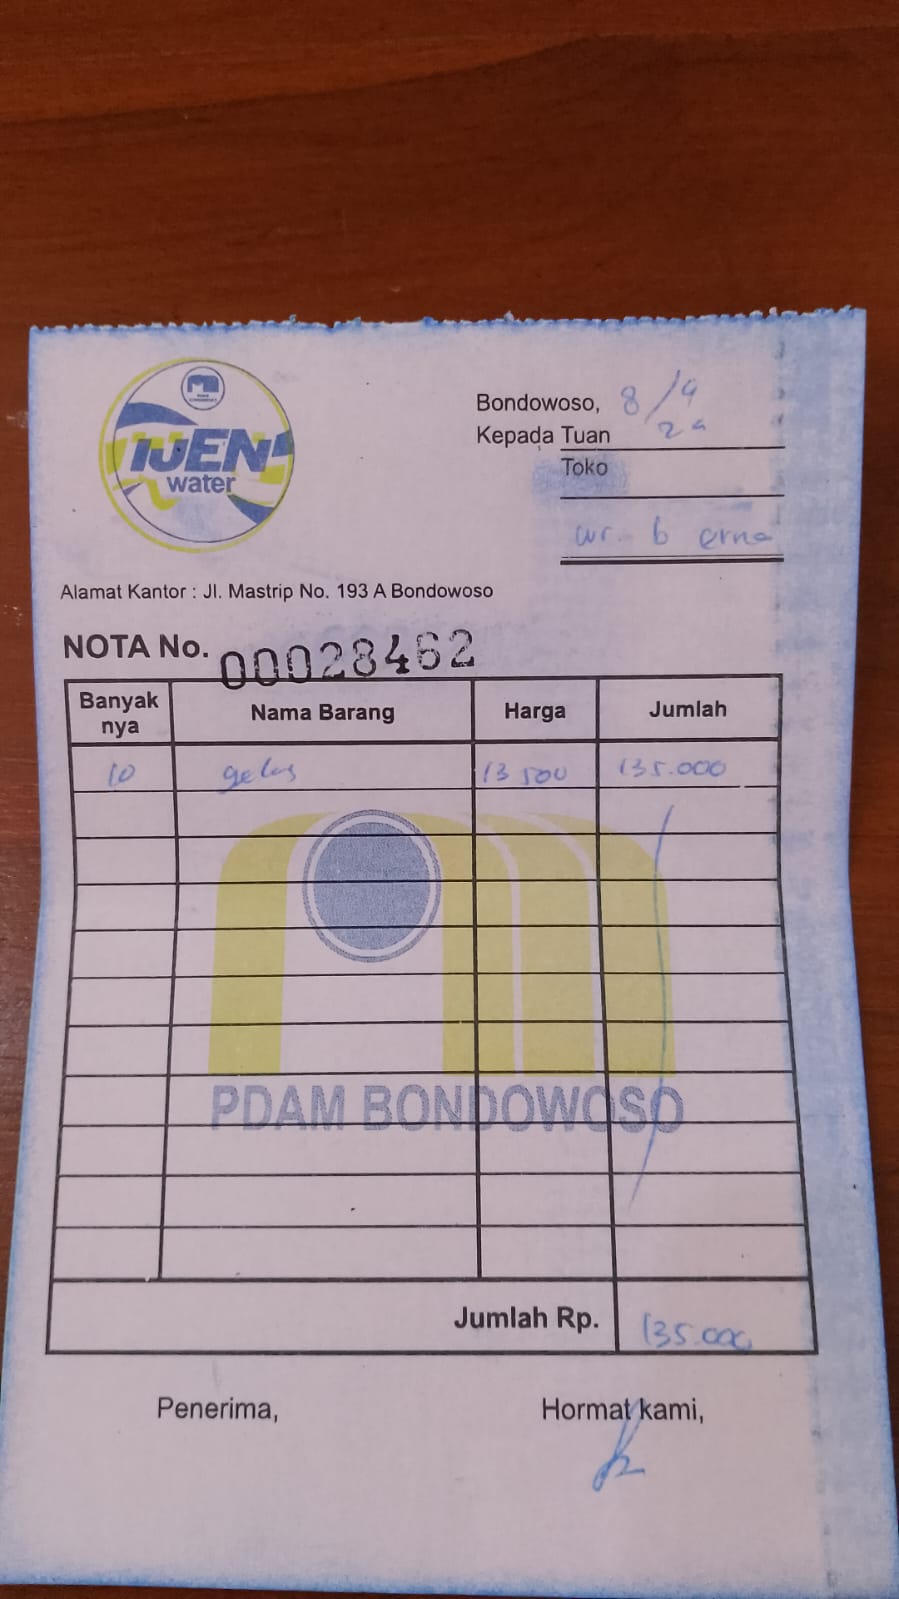 IJEN
water
Bondowoso, 8/9
Kepada Tuan 24
Toko
wr. b erna
Alamat Kantor : Jl. Mastrip No. 193 A Bondowoso
NOTA No. 00028462
Banyak nya Nama Barang Harga Jumlah
10 gelas 13 500 135.000
PDAM BONDOWOSO
Jumlah Rp. 135.000
Penerima, Hormat kami,